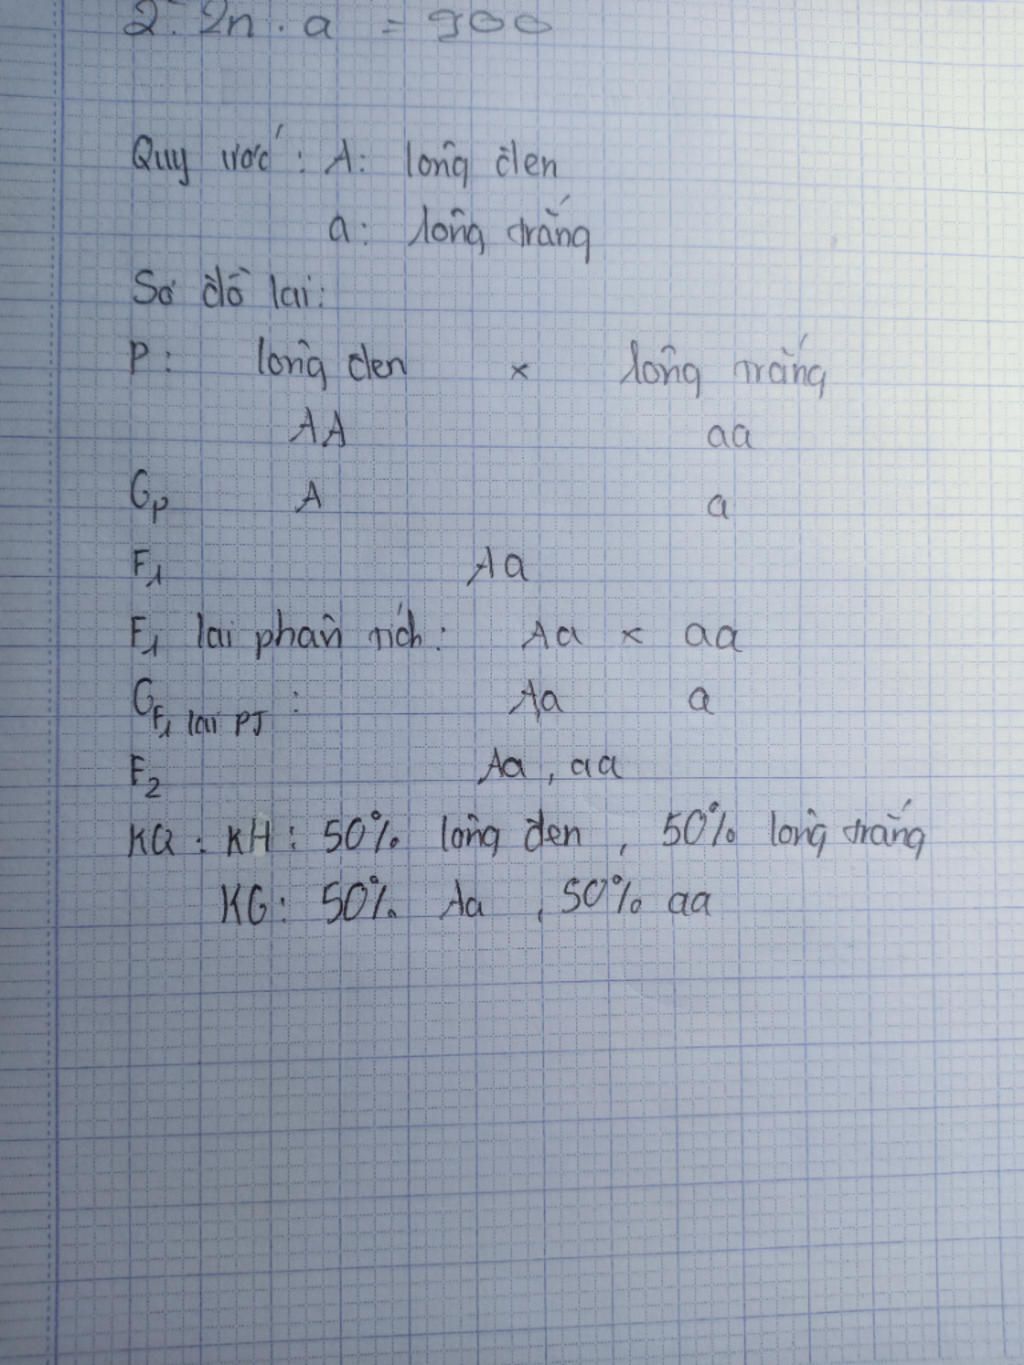 2. 2n . a = 900
Quy ước : A: lông đen
a: lông trắng
Sơ đồ lai:
P: lông đen × lông trắng
AA aa
GP A a
F1 Aa
F1 lai phân tích: Aa × aa
GF1 lai PT : Aa a
F2 Aa , aa
KQ : KH : 50% lông đen , 50% lông trắng
KG : 50% Aa , 50% aa